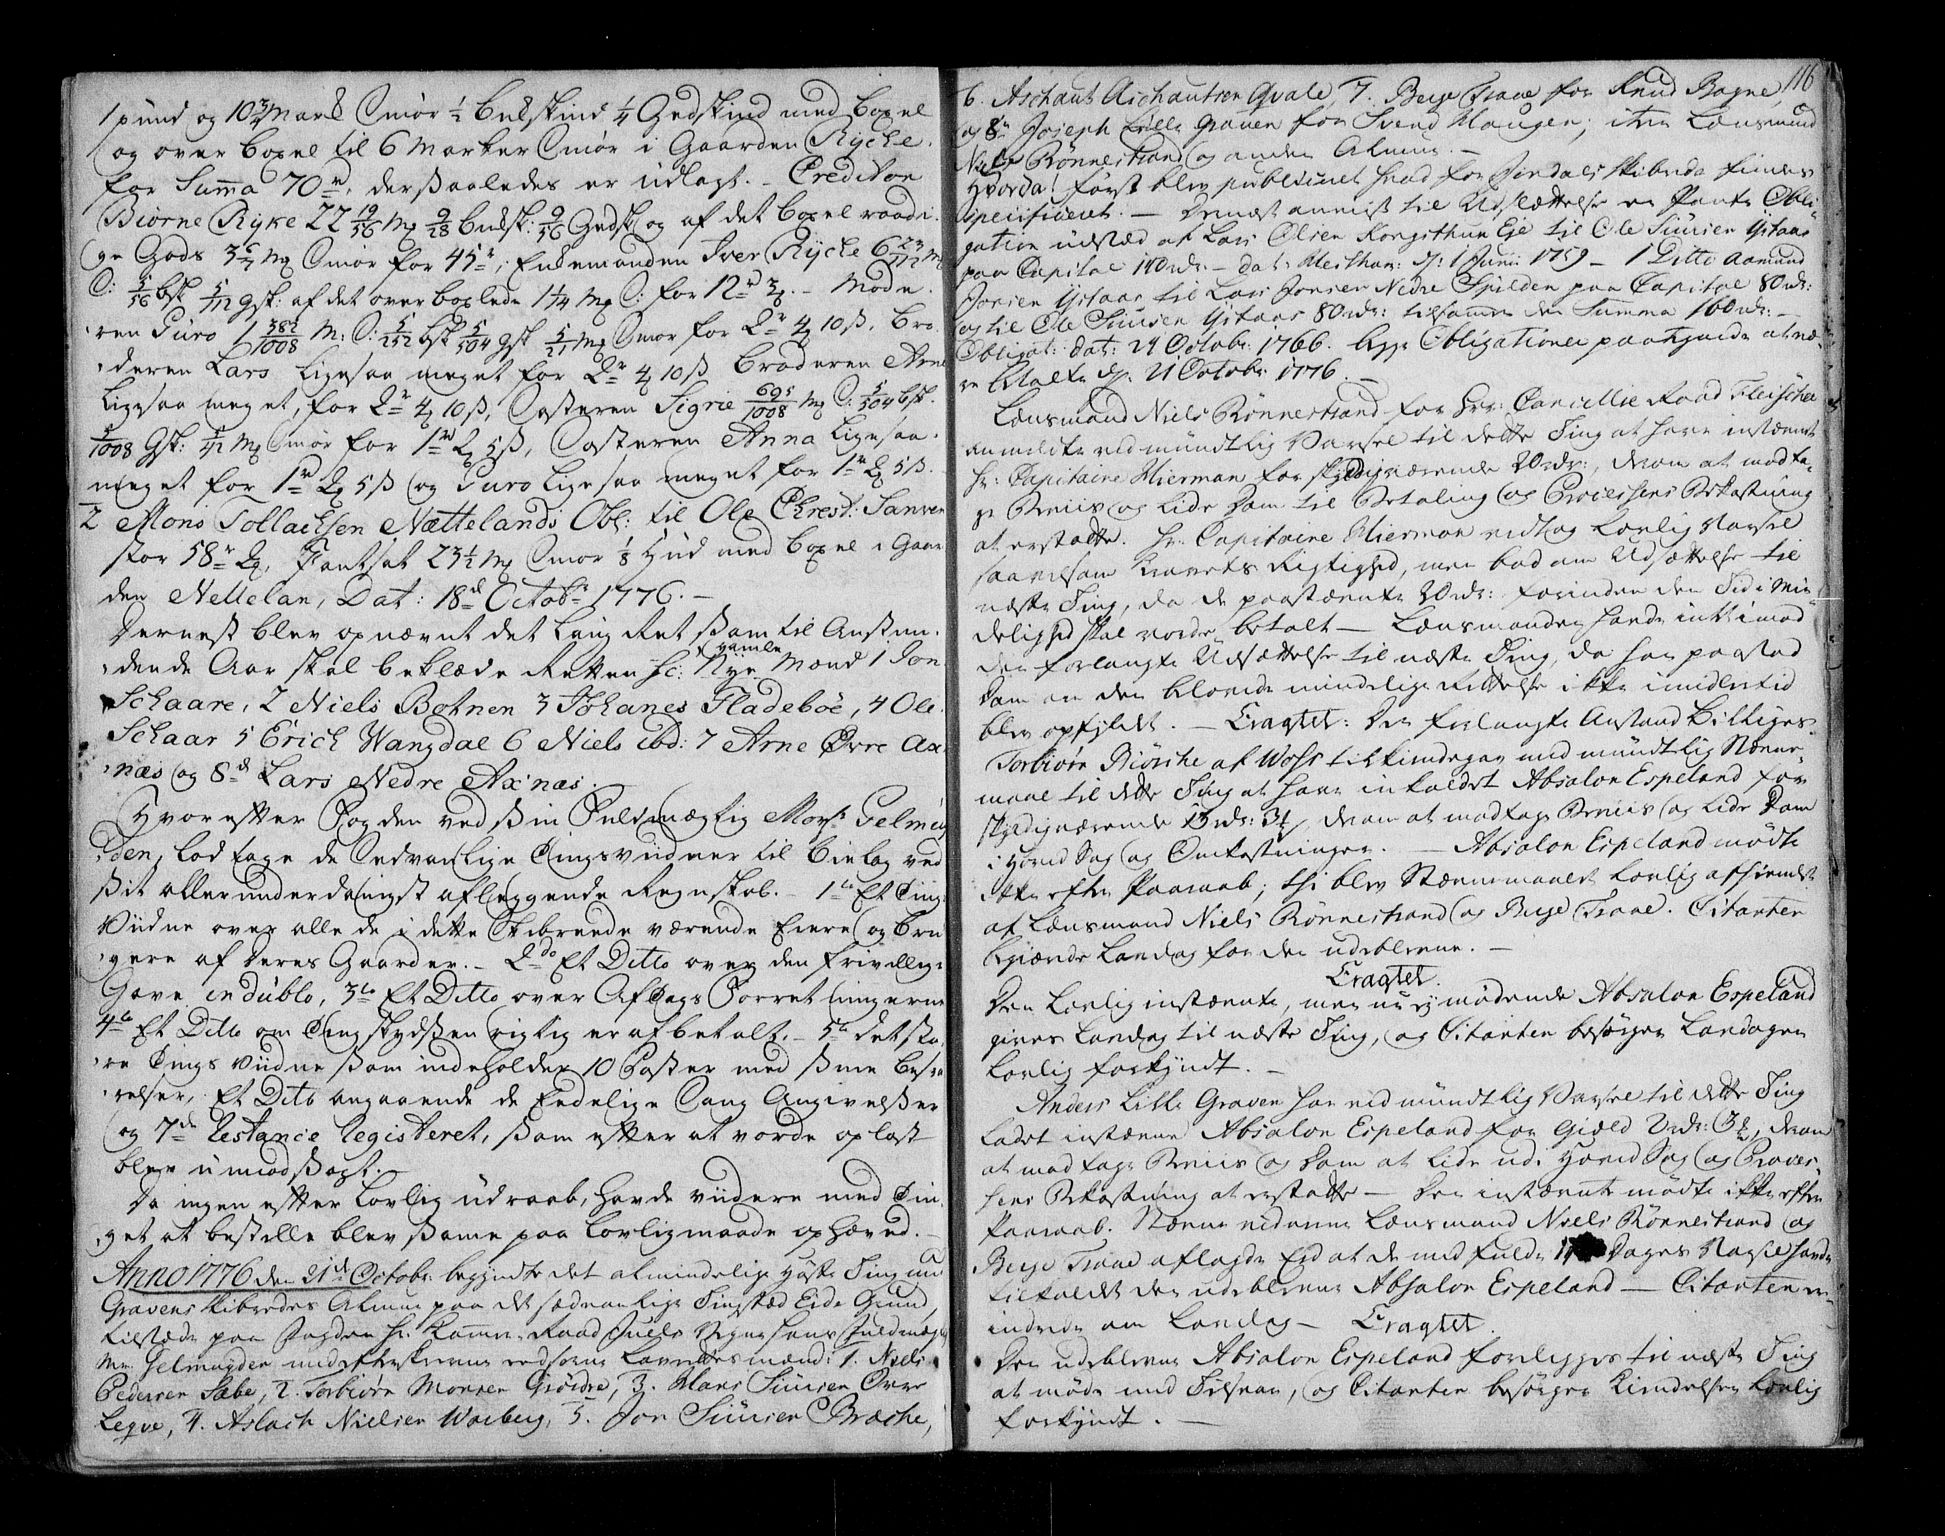 1 pund og 10 3/4 Mark Smør 1/2 budskind 1/4 Gedskind med boxel
og over boxel til 6 Marker Smør i Gaarden Rycke.
for Summa 70 rd, der ßaaledes er udlagt. Creditor
Biørne Ryke 22 19/56 Mk 9/28 budsk: 9/56 Gedsk og af det boxel raadi-
ge Gods 3 6/7 Mk Smør for 45 r; Enkemanden Iver Rycke 6 23/112 M
S: 5/56 bsk 5/112 gsk: af det over boxlede 1 1/14 Mk S: for 12 rd 3 Mk. Mode-
ren Guro 1 382/1008 M: S: 5/252 bsk 5/504 gsk 5/21 Mk Smør for 2 r 4 Mk 10 ß, bro-
deren Lars Ligesaa meget for 2 r 4 Mk 10 ß broderen Arne
Ligesaa meget, for 2 r 4 Mk 10 ß, Søsteren Sigrie 695/1008 Mk S: 5/504 bsk.
/1008 Gsk: Mk Smør for 1 rd 2 Mk 5 ß, Søsteren Anna Ligesaa
meget for 1 rd 2 Mk 5 ß og Guro Ligesaa meget for 1 r 2 Mk 5 ß.
2 Mons Tollachsen Nættelands Obl: til Ole Christ: Sanven
stor 58 r 2 Mk, Pantsat 23 1/2 Mk Smør 1/8 Hud med boxel i Gaar
den Nettelan, Dat: 18 d Octobr 1776. —
Dernest blev opnævnt det Laug Ret ßom til Anstun-
dende Aar skal beklæde Retten sc: Nye gamle Mænd 1 Jon
Schaare, 2 Niels Botnen 3 Johanes Fladebøe, 4 Ole
Schaar 5 Erich Wangdal 6 Niels ibd: 7 Arne Øvre Ax-
næs og 8 d Lars Nedre Axnæs.
Hvor effter Fogden ved ßin Fuldmægtig Monsr Gelmuy-
den, lod tage de Sedvanlige Tingsvidner til bielag ved
ßit allerunderdanigst aflæggende Regnskab. 1te Et Ting-
Vidne over alle de i dette Skibreede værende Eiere og bru-
gere af deres Gaarder. 2do Et Ditto over den frivillige
Gave in dublo, 3te Et Ditto over AfTags Forretningerne
4te Et Ditto om Tingskydßen rigtig er afbetalt. 5te det sto-
re Tings Vidne ßom indeholder 10 Poster med ßine besva-
relser, Et Dito angaaende de Endelige Saug Angivelßer
og 7de Restance Registeret, ßom effter at vorde oplæst
blev uimodßagt.
Da ingen effter Lovlig udraab, havde viidere med Tin-
get at bestille blev ßame paa Lovligmaade ophæved.
Anno 1776 den 21de Octobr. begyndte det almindelige Høste Ting med
Gravens Skibredes Almue paa det sædvanlige Tingsted Eide Grund,
tilstæde paa Fogden Hr Kamer-Raad Juels Vegne hans Fuldmægtig
Mr. Gelmuyden med efterskrevne eedsorne Lavrettesmænd: 1. Niels
Pedersen Sæbe, 2. Torbiørn Monsen Giøsdre, 3. Hans Siursen Øvre
Legre, 4. Aslach Nielsen Warberg, 5. Jon Siursen Bræche,
116
6. Aschaut Aschautsen Qvale, 7. Berge Traae for Knud Bagne,
og 8de Joseph Lille Graven for Svend Haugen; item Lensmand
Niels Rønnestrand og anden Almue. —
Hvorda! først blev publiceret hvad for Jondals Skibrede findes
specificeret. — Dernæst anvist til Udslættelse en Pante Obli-
gation udsted af Lars Olsen Kongsthun Eje til Ole Siursen Ystaas
paa Capital 140 rdr. — dat: Mesthun d: 1 Junii 1759 — 1 Ditto Aamund
Jonsen Ystaas til Lars Jonsen Nedre Spilden paa Capital 80 rdr:
og til Ole Siursen Ystaas 80 rdr: tilsamen den Summa 160 rdr: —
Obligat: dat: 24 Octobr: 1766. begge Obligationer paategnede at væ-
re betalte d: 21 Octobr: 1776.
Lensmand Niels Rønnestrand for Hr: Cancellie Raad Fleischer
anmeldte ved mundtlig Varsel til dette Ting at have instævnt
Hr: Capitaine Mierman for skyldigværende 20 rdr:, derom at modta-
ge Beviis og lide Dom til Betaling og Processens Bekostning
at erstatte. Hr: Capitaine Mierman vedtog Lovlig Varsel
saavelsom Kravets Rigtighed, men bad om Udsættelse til
næste Ting, da de paastævnte 20 rdr: forinden den Tid i Min-
delighed skal vorde betalt — Lensmanden havde intet imod
den forlangte Udsættelse til næste Ting, da han paastod
Dom om den lovede mindelige Rettelse ikke imidlertid
blev opfyldt. — Eragtet: Den forlangte Anstand bevilges.
Torbiørn Biørche af Woss tilkiendegav med mundtlig Stævne-
maal til dette Ting at have indkaldet Absalon Espeland for
skyldigværende 13 rdr: 3 Mk, derom at modtage Beviis og lide Dom
i Hoved Sag og Omkostninger. — Absalon Espeland mødte
ikke efter Paaraab; thi blev Stævnemaalet Lovlig afhiemlet
af Lensmand Niels Rønnestrand og Berge Traae. Citanten
begiærede Lavdag for den udeblevne. —
Eragtet.
Den Lovlig instævnte, men nu ej mødende Absalon Espeland
gives Lavdag til næste Ting, og Citanten besørger Lavdagen
Lovlig forkyndt. —
Anders Lille Graven har ved mundtlig Varsel til dette Ting
ladet instævne Absalon Espeland for Giæld 2 rdr: 3 Mk, derom
at modtage Beviis og Dom at lide udi Hoved Sag og Proces-
sens Bekostning at erstatte — Den instævnte mødte ikke efter
Paaraab. Stævnevidnerne Lensmand Niels Rønnestrand og
Berge Traae aflagde Eed at de med fulde 14 Dages Varsel havde
tilkaldet den udeblevne Absalon Espeland — Citanten er-
indrede om Lavdag — Eragtet.
Den udeblevne Absalon Espeland forelegges til næste Ting
at møde med Tilsvar, og Citanten besørger Kiendelsen Lovlig
forkyndt. —